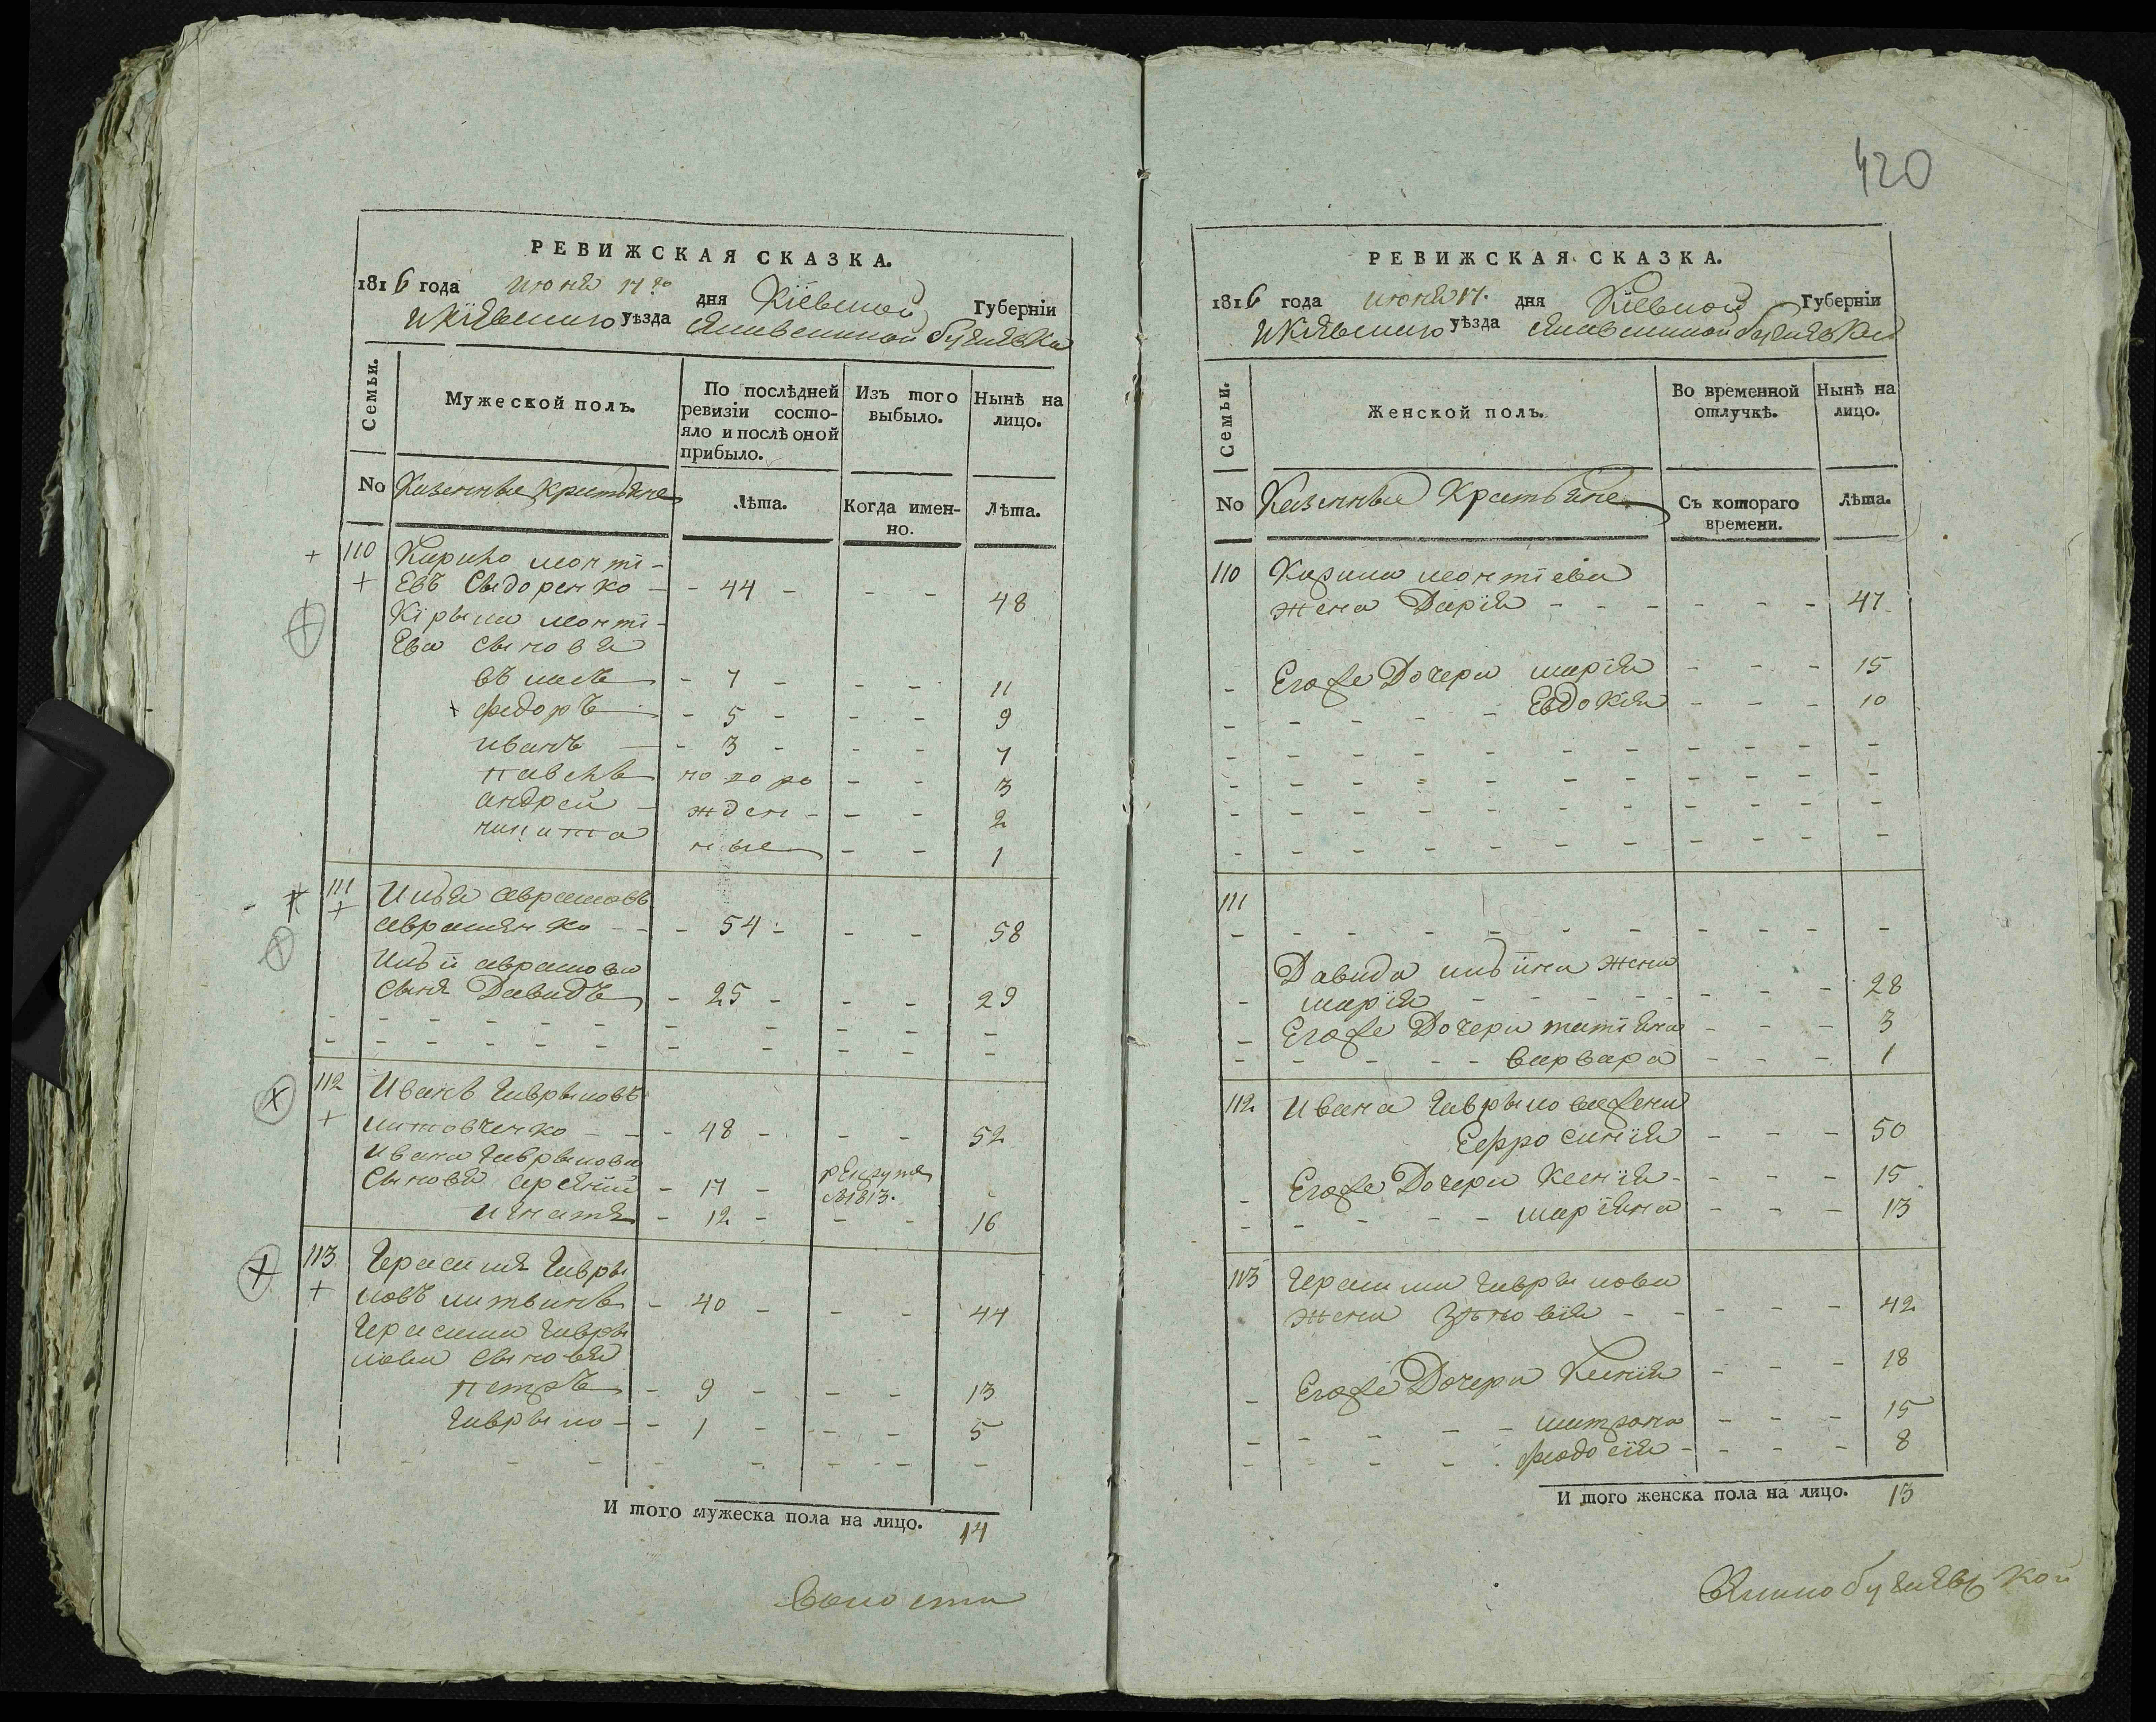 420
РЕВИЖСКАЯ СКАЗКА.
1816 года июня 17го дня Кіевской Губерніи
уѣзда
Семьи.
Мужеской полъ.
По послѣдней ревизіи состо-
яло и послѣ оной
прибыло.
Изъ того
выбыло.
Нынѣ на
лицо.
No Казенные крестьяне
Лѣта.
Когда имен-
но.
Лѣта.
110 Кирило леонті-
евъ Сидоренко - 44 - - - 48
Кірыла леонті-
ева сыновья
- 7 - - - 11
федоръ - 5 - - - 9
иванъ - 3 - - - 7
павелъ новоро - - 3
андрей - жден - - - 2
никита ные - - 1
111 Илья аврамовъ
аврамянко - - 54 - - - 58
Ильи аврамова
сынъ Давидъ - 25 - - - 29
112 Иванъ гаврыловъ
литовченко - - 48 - - - 52
Ивана гаврылова
сыновья - 17 - рекрутъ
в 1813. -
игнатъ - 12 - - - 16
113 Герасимъ гавры
ловъ литвинъ - 40 - - - 44
Герасима гавры
лова сыновья
петръ - 9 - - - 13
гаврыло - - 1 - - - 5
И того мужеска пола на лицо. 14
волости
РЕВИЖСКАЯ СКАЗКА.
1816 года июня 17. дня Кіевской Губерніи
уѣзда
Семьи.
Женской полъ.
Во временной
отлучкѣ.
Нынѣ на
лицо.
No Казенные Крестьяне
Съ котораго
времени.
Лѣта.
110 Кирила леонтіева
жена Дарія - - - - - - 47
Егоже Дочери марія - - - 15
Евдокія - - - 10
111
Давида ильина жена
марія - - - - - - 28
Егоже Дочери татіяна - - - 3
варвара - - - 1
112 Ивана гаврылова жена
Ефросинія - - - 50
Егоже Дочери Ксенія - - - - 15
маріяна - - - 13
113 Герасима гаврылова
жена зѣновія - - - - - 42
Егоже Дочери Ксенія - - - 18
матрона - - - 15
феодосія - - - - 8
И того женска пола на лицо. 13